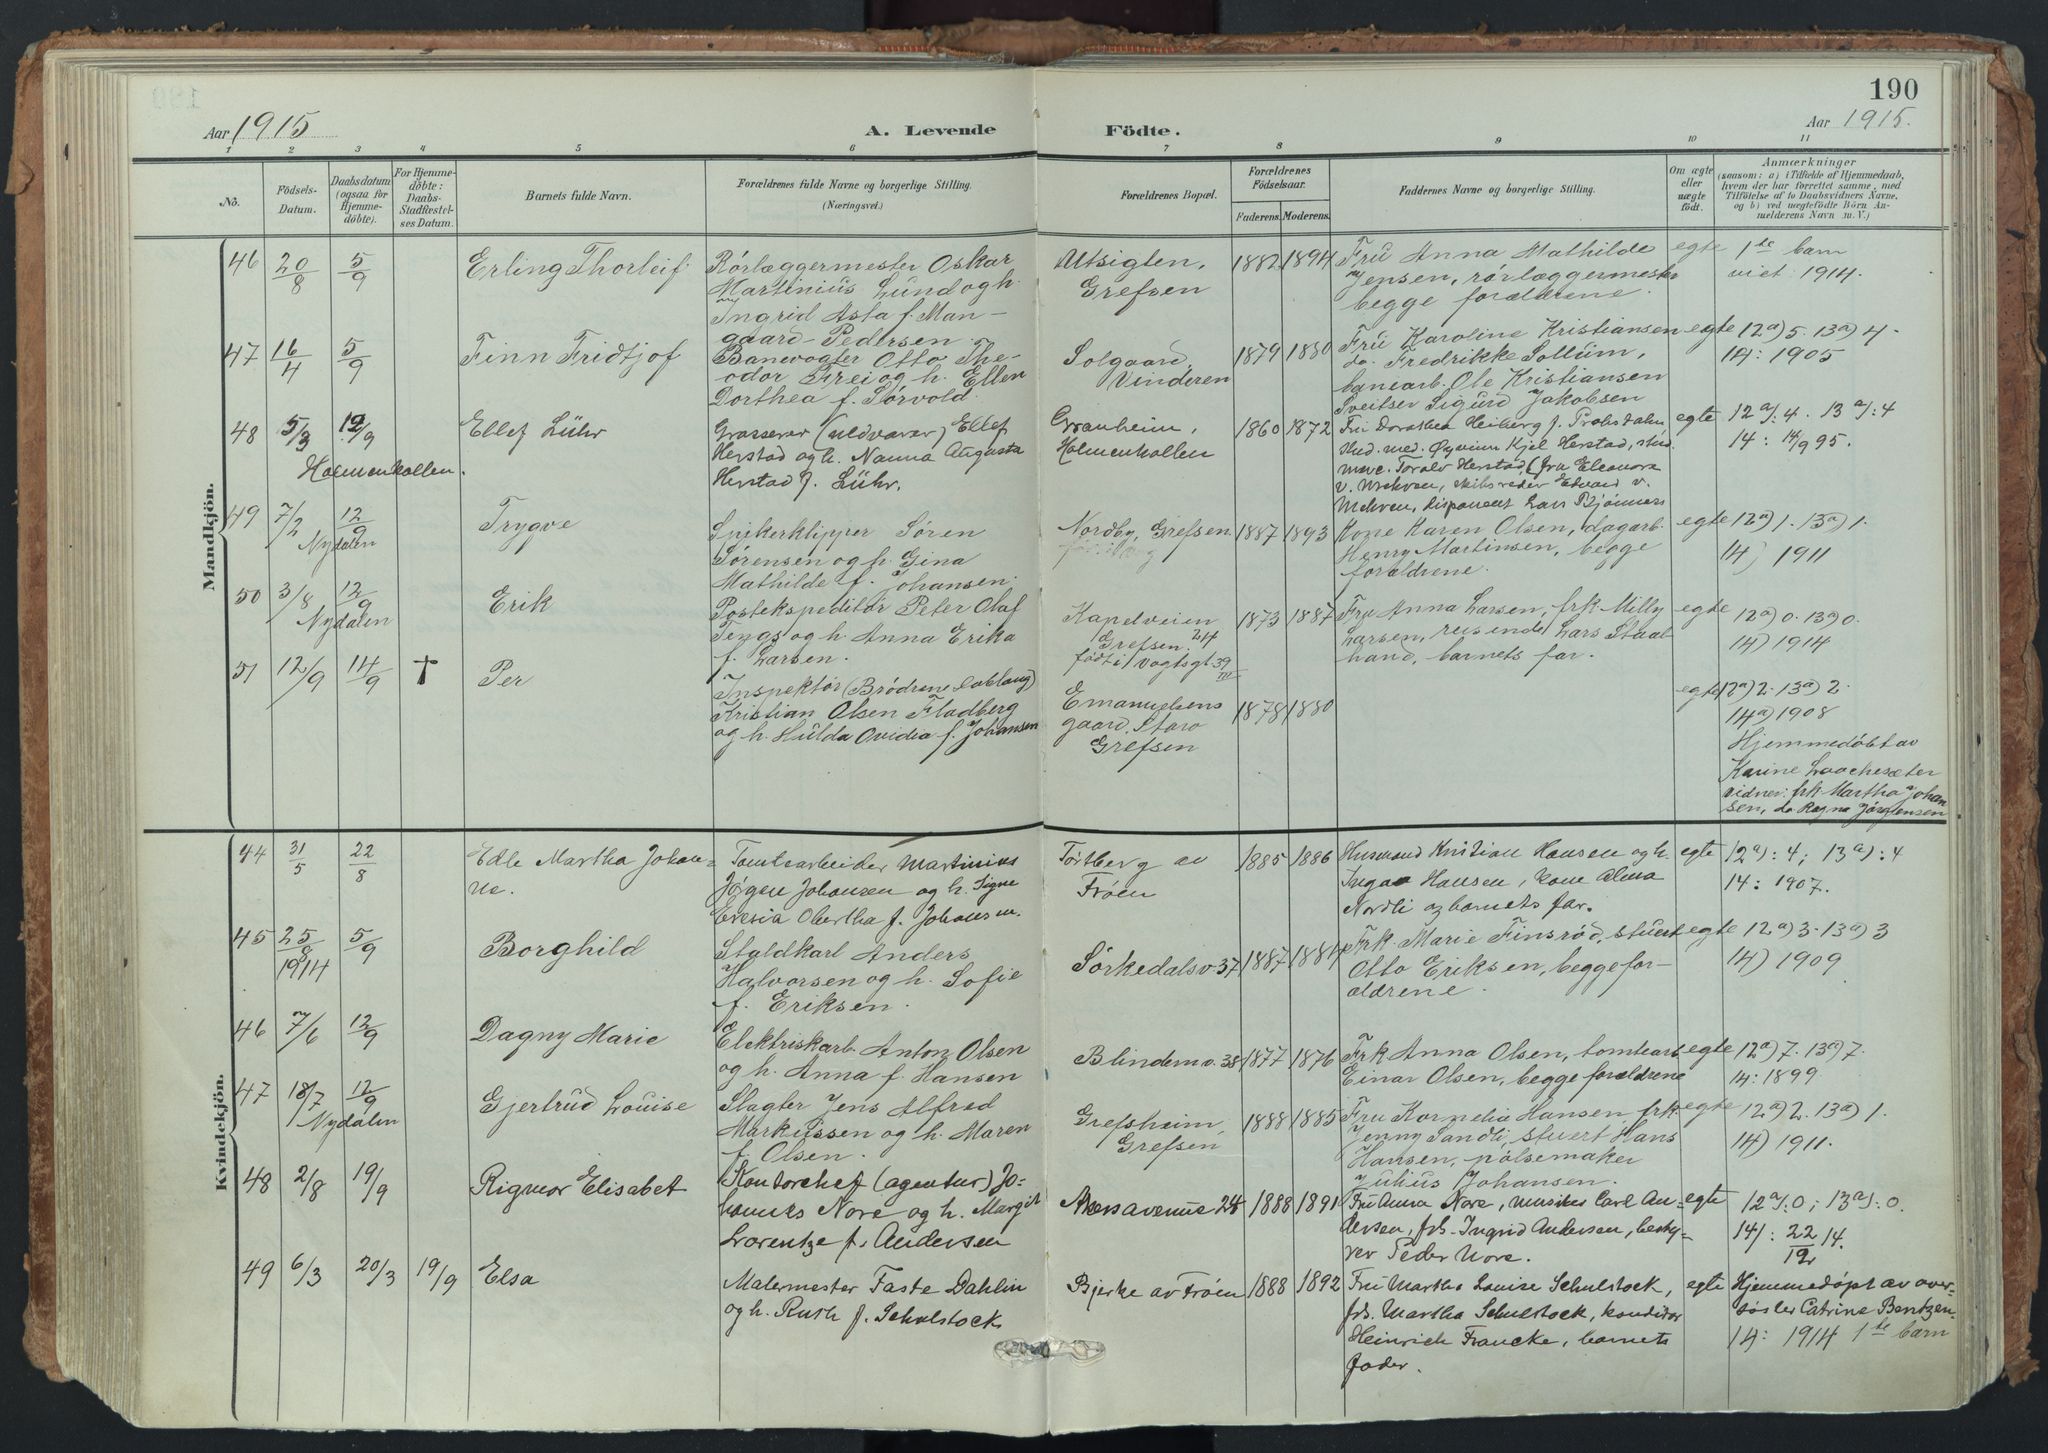 190
Aar 1915
A. Levende Födte.
Aar 1915.
1 2 3 4 5 6 7 8 9 10 11
No.
Födsels-
Datum.
Daabsdatum
(ogsaa for
Hjemme-
döbte).
For Hjemme-
döbte:
Daabs-
Stadfæstel-
ses Datum.
Barnets fulde Navn.
Forældrenes fulde Navne og borgerlige Stilling.
(Næringsvei.)
Forældrenes Bopæl.
Forældrenes
Födselsaar.
Faderens. Moderens.
Faddernes Navne og borgerlige Stilling.
Om ægte
eller
uægte
födt.
Anmærkninger
(saasom: a) i Tilfælde af Hjemmedaab,
hvem der har forrettet samme, med
Tilföielse af to Daabsvidners Navne,
og b) ved uægtefödte Börn An-
melderens Navn m. V.)
Mandkjön.
46 20/8 5/9 Erling Thorleif.
Rørlæggermester Oskar
Martinius Lund og h.
Ingrid Asta f. Man-
gaard-Pedersen
Utsigten,
Grefsen
1882 1894
Fru Anna Mathilde
Jensen, rørlæggermester
begge forældrene.
egte
1ste barn
viet 1914.
47 16/4 5/9 Finn Fridtjof
Banevogter Otto The-
odor Frei og h. Ellen
Dorthea f. Sørvold.
Solgaard,
Vinderen
1879 1880
Fru Karoline Kristiansen
do. Fredrikke Sollum,
banearb. Ole Kristiansen
Sveitser Sigurd Jakobsen
egte
12a) 5. 13a) 4.
14: 1905
48 5/3 12/9 Ellef Lühr
Holmenkollen.
Grosserer (uldvarer) Ellef
Herstad og h. Nanna Augusta
Herstad f. Lühr.
Granheim,
Holmenkollen
1860 1872
Fru Dorothea Heiberg f.
Stud. med. Øyvinn Kjel Herstad, stud.
Toralv Herstad, fru Eleonora
v. skibsreder Edvard v.
disponent Lars
egte
12 a/: 4. 13 a/: 4
14: 14/9 95.
49 7/2 12/9 Trygve
Nydalen
Spikerklipper Søren
Sørensen og h. Gina
Mathilde f. Johansen.
Nordby, Grefsen
1887 1893
Kone Karen Olsen, dagarb.
Henry Martinsen, begge
forældrene.
egte
12a) 1. 13a) 1.
14) 1911
50 3/8 12/9 Erik
Nydalen
Postekspeditør Peter Olaf
Tengs og h. Anna Erika
f. Larsen.
Kapelveien
24
Grefsen.
født i Vogtsgt. 39
1873 1887
Fru Anna Larsen, frk. Milly
Larsen, reisende Lars Staal-
hand, barnets far.
egte
12a) 0. 13a) 0.
14) 1914
51 12/9 14/9 † Per
Inspektør (Brødrene Dobloug)
Kristian Olsen Fladberg
og h. Hulda Ovidia f. Johansen
Emanuelsens
gaard, Store
Grefsen
1878 1880
egte
12a) 2. 13a) 2.
14a) 1908
Hjemmedøbt av
Karine
vidner: frk. Martha Johan
sen, do Ragna Jørgensen
Kvindekjön.
44 31/5 22/8 Edle Martha Johan-
ne.
Tomtearbeider Martinius
Jørgen Johansen og h. Signe
Eresia Obertha f. Johansen.
Tørtberg av
Frøen
1885 1886
Husmand Kristian Hansen og h.
Inga Hansen, Kone Alma
Nordli og barnets far.
egte
12a): 4; 13a): 4
14: 1907.
45 25/9 1914 5/9 Borghild
Staldkarl Anders
Halvorsen og h. Sofie
f. Eriksen.
Sørkedalsv. 37
1887 1884
Frk. Marie Finsrød, stuert
Otto Eriksen, begge for-
ældrene.
egte
12a) 3. 13a) 3
14) 1909
46 7/6 12/9 Dagny Marie
Elektriskarb. Anton Olsen
og h. Anna f. Hansen
Blindernv. 38
1877 1876
Frk. Anna Olsen, tomtearb.
Einar Olsen, begge forældrene
egte
12a) 7. 13a) 7.
14: 1899.
47 18/7 12/9 Gjertrud Louise
Nydalen
Slagter Jens Alfred
Markussen og h. Maren
f. Olsen.
Grefsheim
Grefsen
1888 1885
Fru Kornelia Hansen, frk.
Jenny Sandli, stuert Hans
Hansen, pølsemaker
Julius Johansen.
egte
12a) 2. 13a) 1.
14) 1911.
48 2/8 19/9 Rigmor Elisabet
Kontorchef (agentur) Jo-
hannes Nore og h. Margit
Lorentze f. Andersen
Akersavenue 28
1888 1891
Fru Anna Nore, musiker Carl An-
dersen, frk. Ingrid Andersen, besty-
rer Peder Nore.
egte
12 a/: 0; 13 a/: 0.
14/: 22/12 14.
49 6/3 20/3 19/9 Elsa
Malermester Faste Dahlin
og h. Ruth f. Schulstock
Bjerke av Frøen
1888 1892
Fru Martha Louise Schulstock,
frk. Martha Schulstock, konditor
Heinrich Francke, barnets
fader.
egte
Hjemmedøpt av over-
søster Catrine Bentzen.
14: 1914 1ste barn